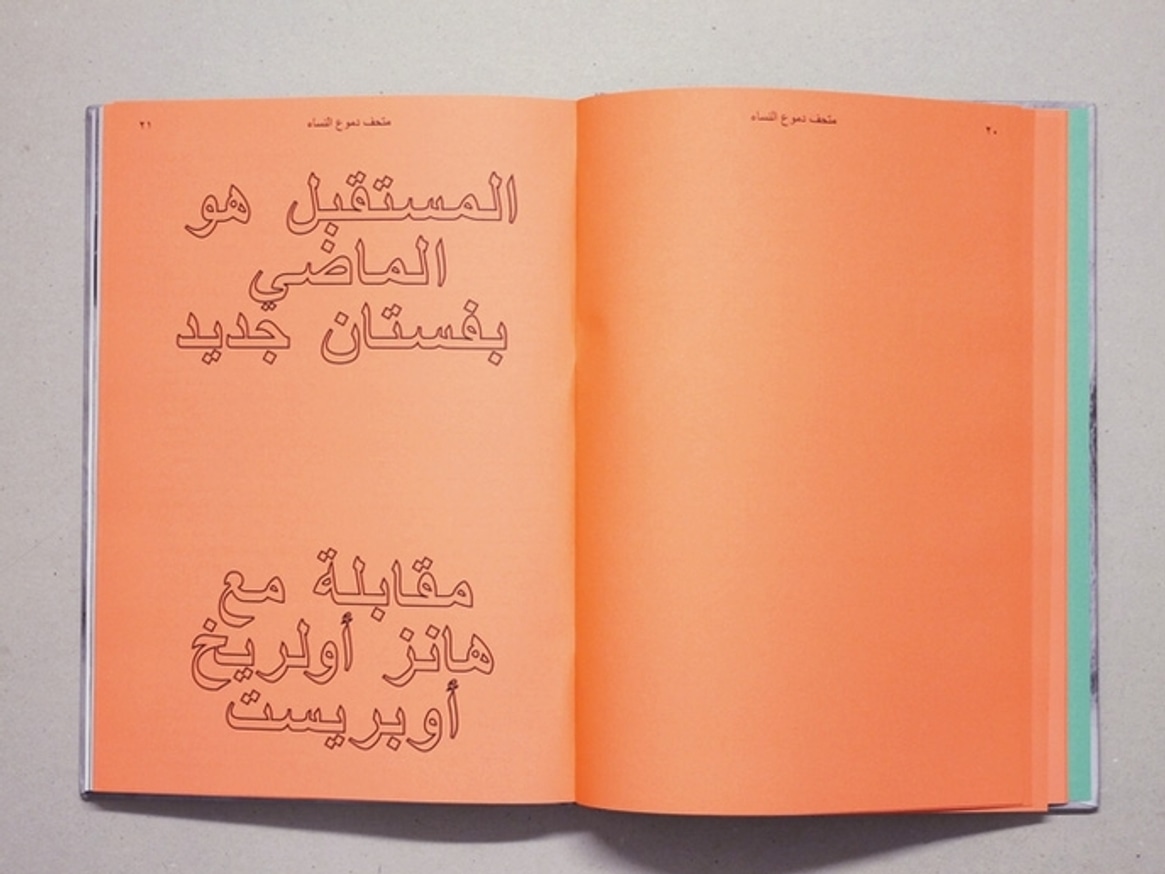 متحف دموع النساء
٢٠
متحف دموع النساء
٢١
المستقبل هو
الماضي
بفستان جديد
مقابلة مع
هانز أولريخ
أوبريست